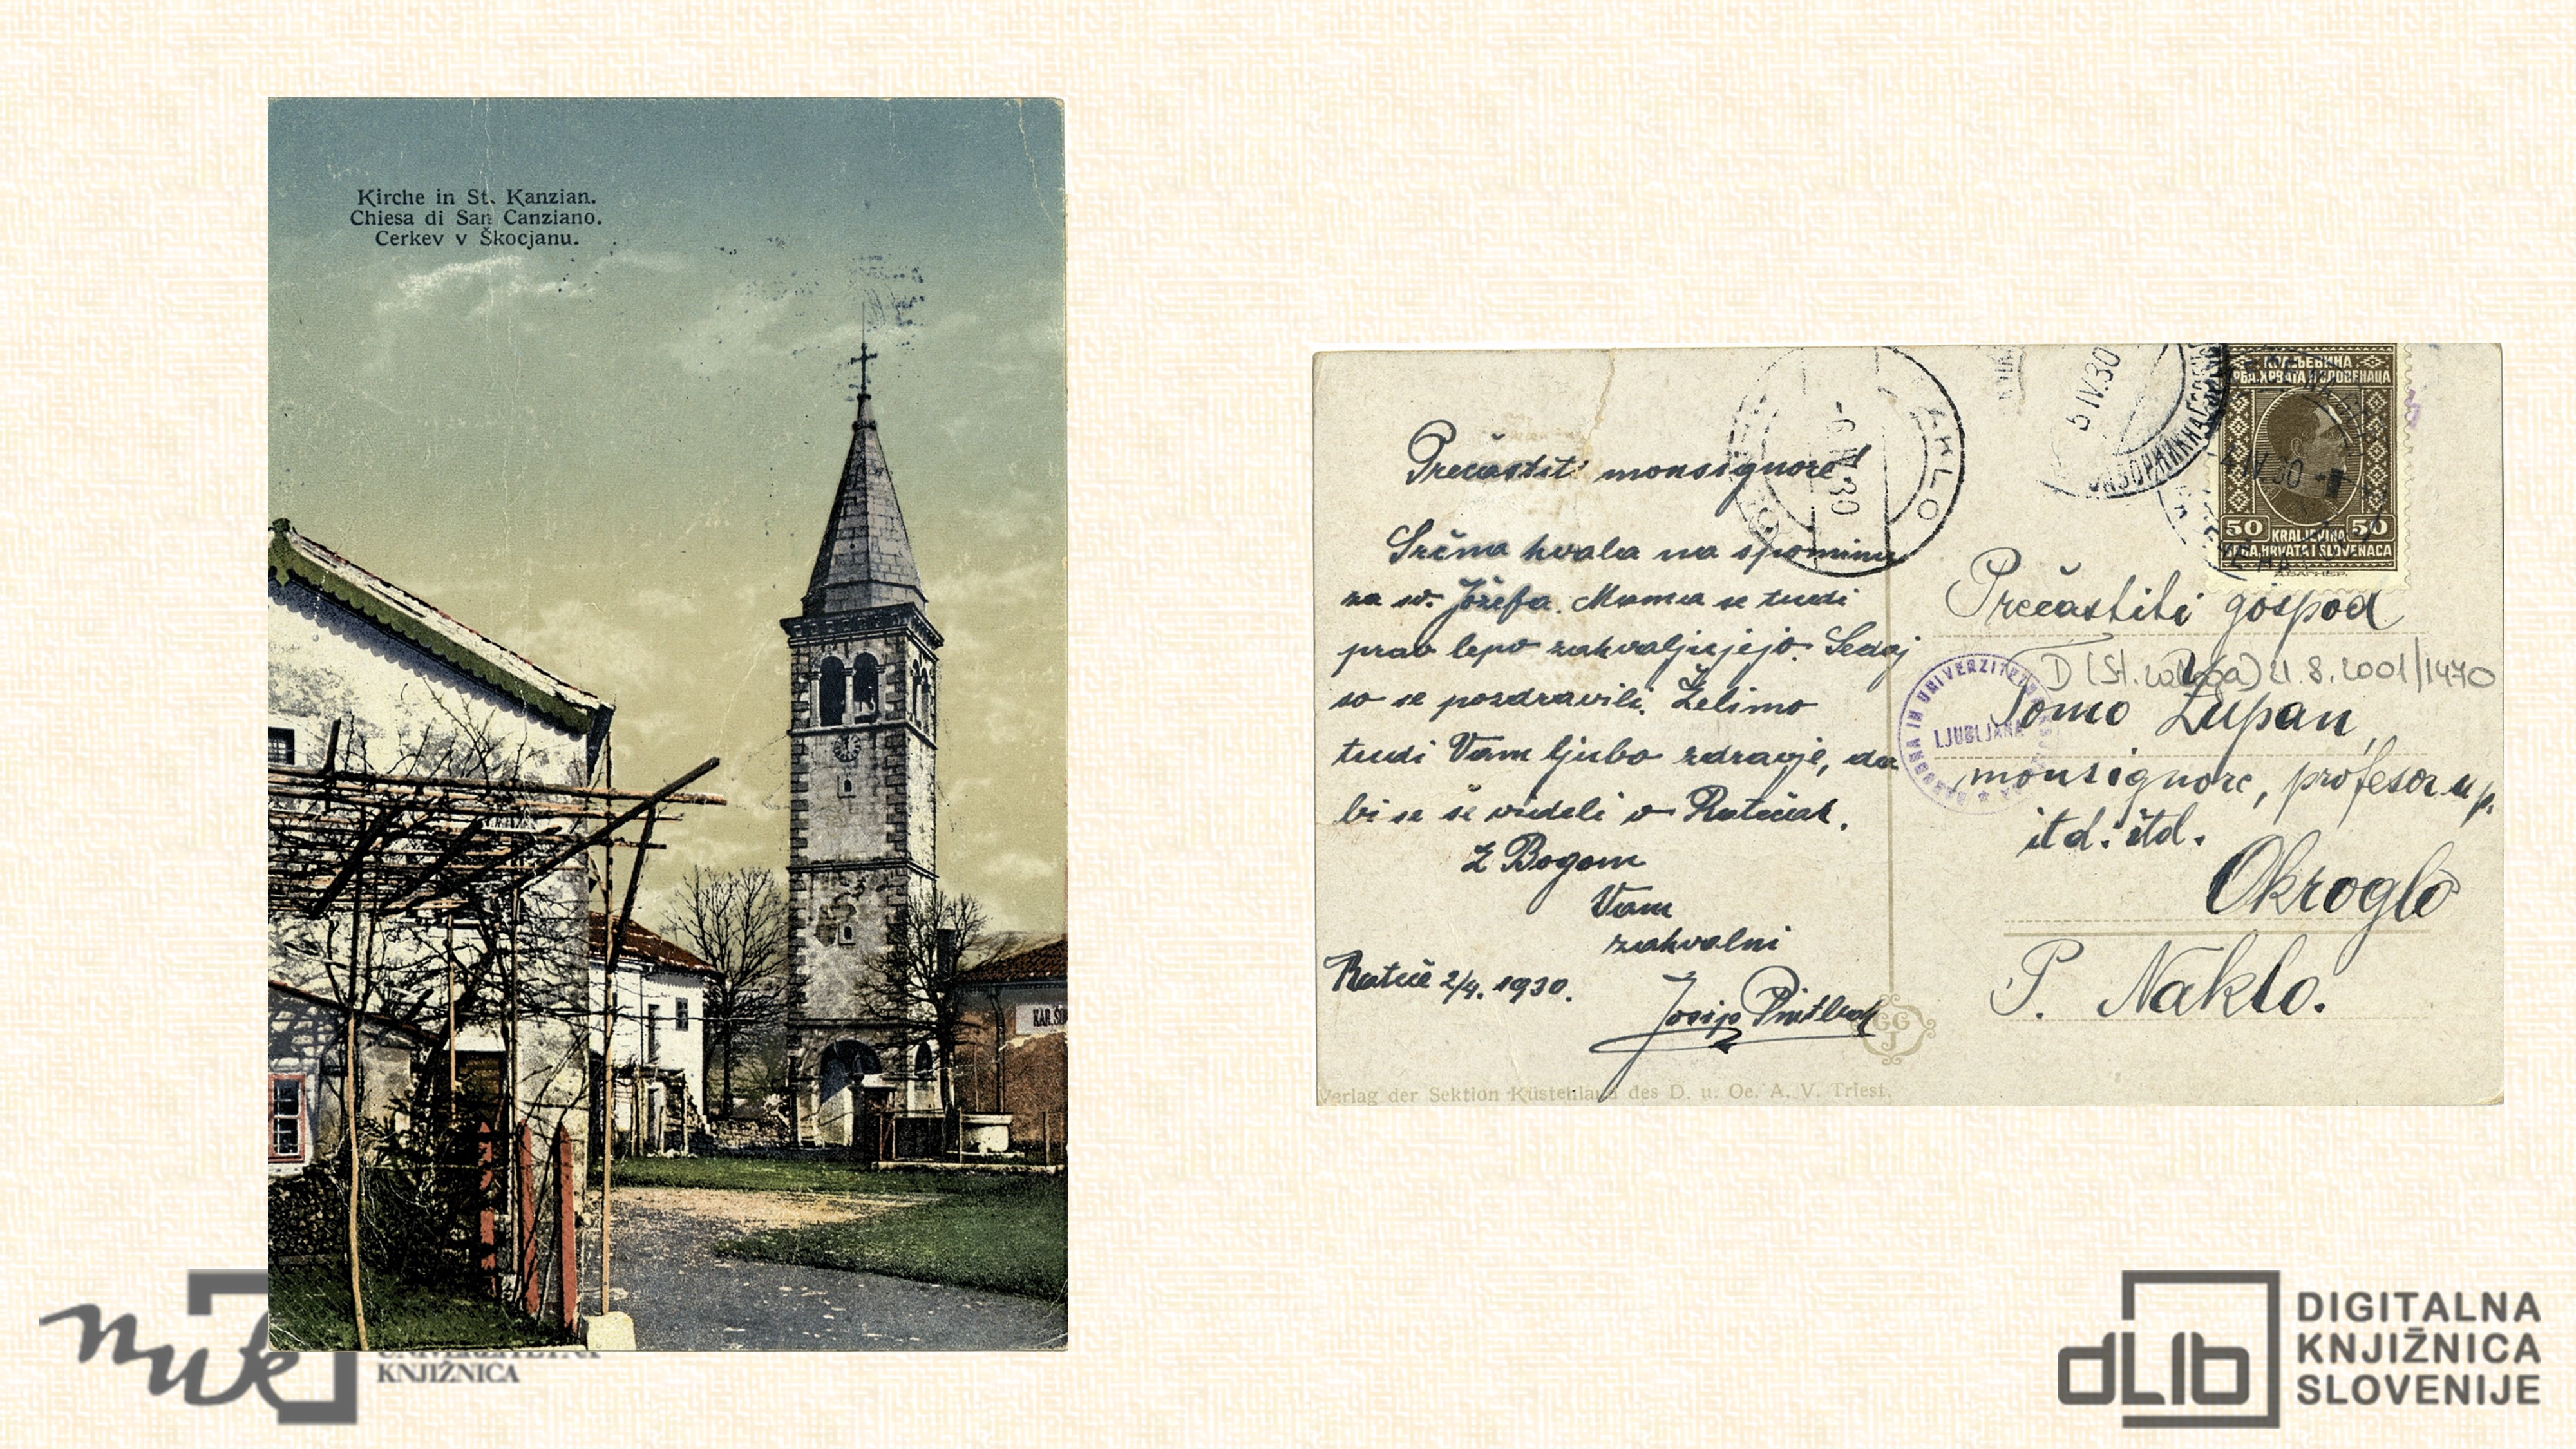 Kirche in St. Kanzian.
Chiesa di San Canziano.
Cerkev v Škocjanu.
KAR. ŠI
Prečastiti monsignore!
Srčna hvala na spominu
za sv. Jožefa. Mama se tudi
prav lepo zahvaljujejo. Sedaj
so se pozdravili. Želimo
tudi Vam ljubo zdravje, da
bi se še videli v Ratečah.
Z Bogom
Vam
zahvalni
Rateče 2/4. 1930.
Josip
Verlag der Sektion Küstenland des D. u. Oe. A. V. Triest.
NAKLO
30
5 IV.30
КРАЉЕВИНА
СРБА, ХРВАТА И СЛОВЕНАЦА
IV 30
50 50
KRALJEVINA
SRBA, HRVATA I SLOVENACA
Prečastiti gospod
D (St. zaloga) 21.8.2001/1470
Tomo Zupan,
LJUBLJANA
monsignore, profesor u p.
itd. itd.
Okroglo
P. Naklo.
nuk
KNJIŽNICA
dLib
DIGITALNA
KNJIŽNICA
SLOVENIJE